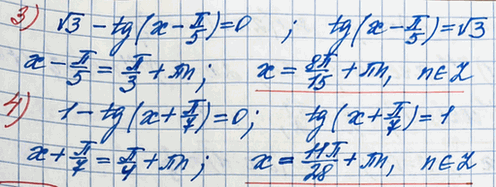 3) √3 - tg(x - π/5) = 0 ; tg(x - π/5) = √3
x - π/5 = π/3 + πn; x = 8π/15 + πn, n ∈ Z
4) 1 - tg(x + π/7) = 0; tg(x + π/7) = 1
x + π/7 = π/4 + πn; x = 11π/28 + πn, n ∈ Z